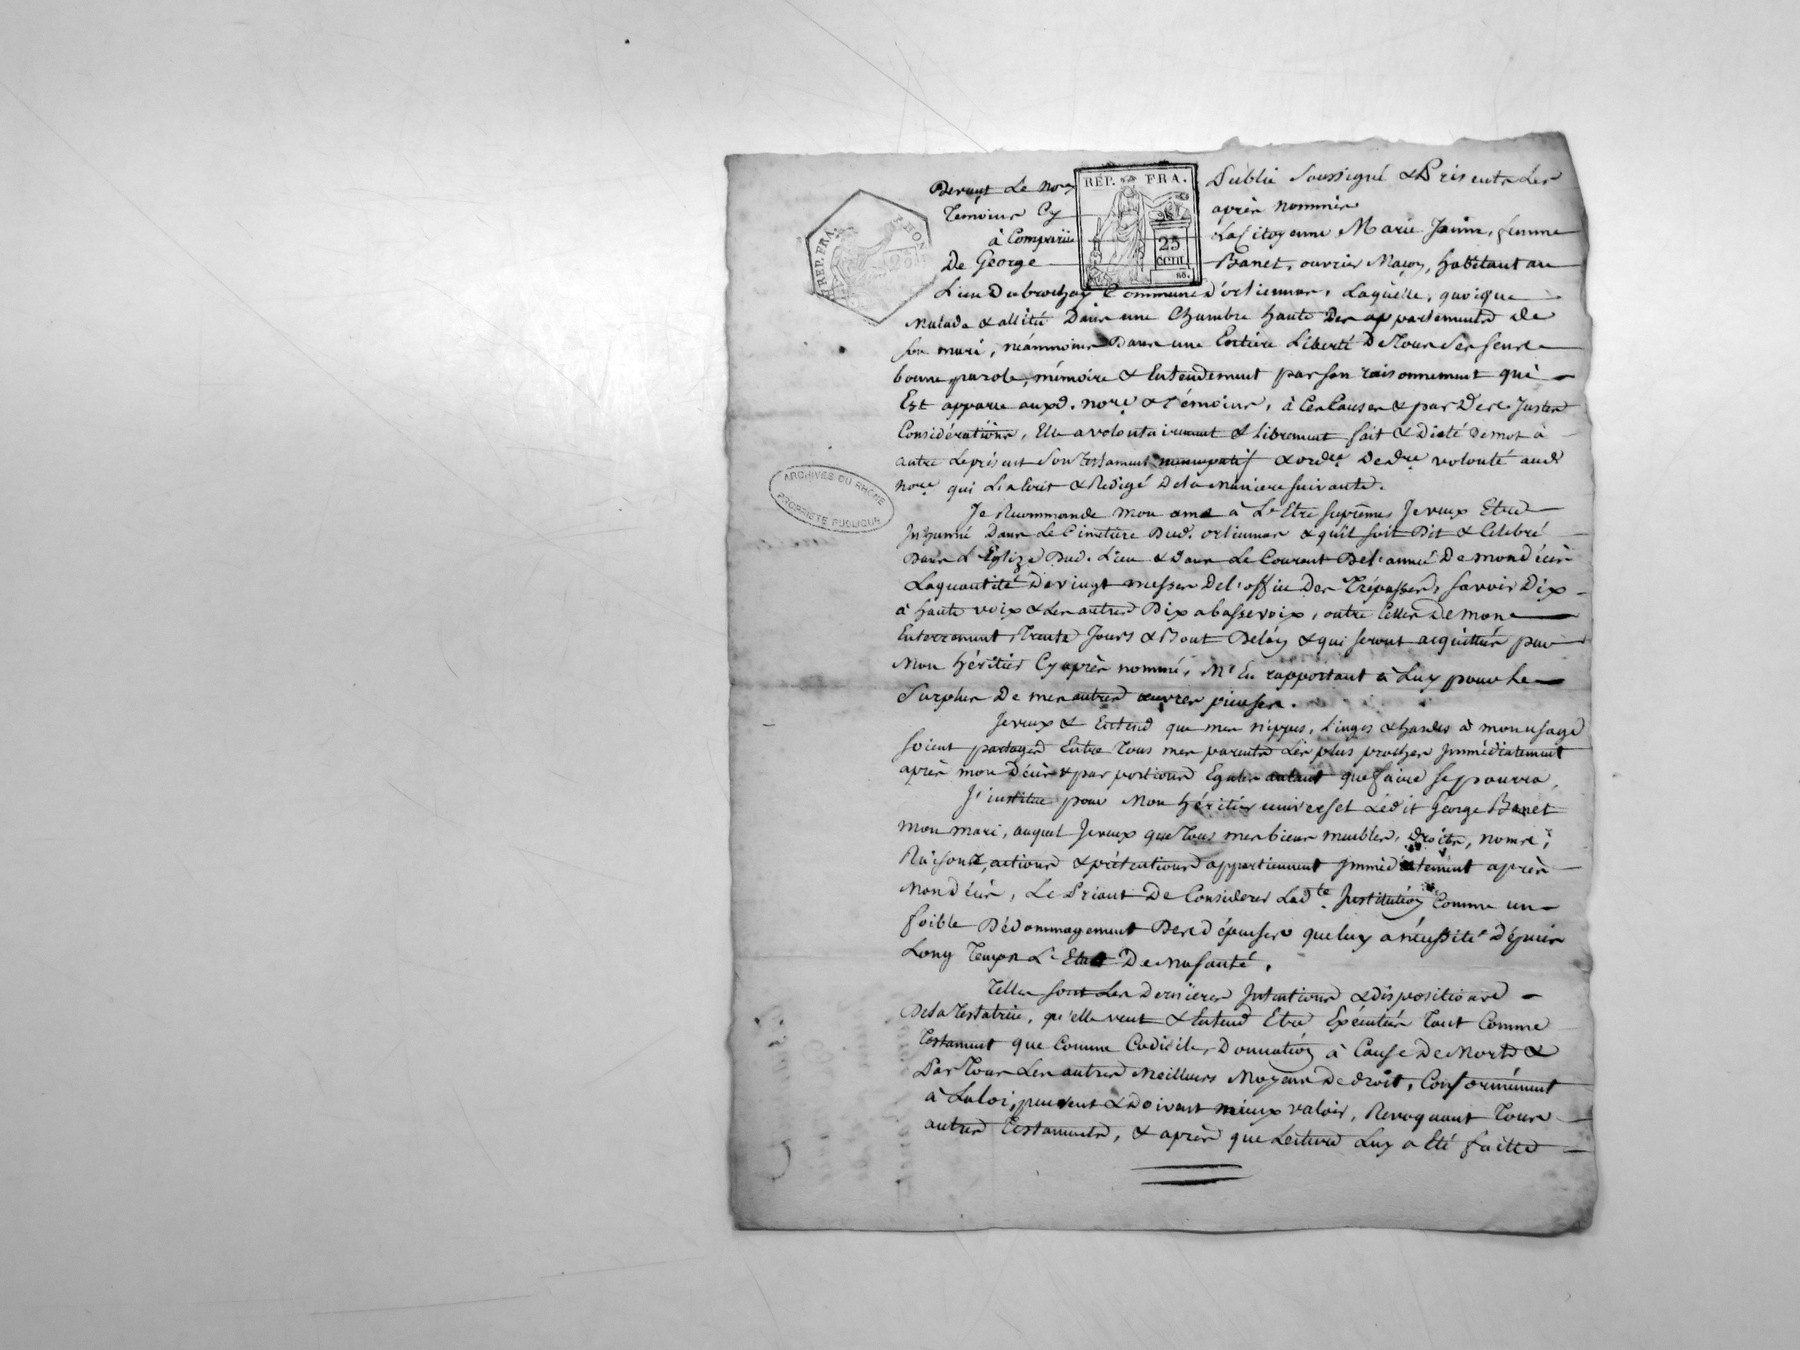 Devant Le Nore Public Soussigné & Présents Les
Témoins Cy après nommés
à Comparüe La Citoyenne Marie Jamin, fémme
De George Banet, ouvrier Maçon, habitant au
Lieu Dubrochay Commune d'orlienas, Laquelle, quoique
Malade & allitée Dans une Chambre haute Des appartements de
son mari, néanmoins Dans une Entiere Liberté De Tous Ses Sens
bonne parole, mémoire & Entendement par son raisonnement qui
Est apparu auxd. nore & Témoins, à Ces Causes & par Des Justes
Considérations, Elle a volontairement & librement fait & Dicté De mot à
autre Le présent Son Testament nuncupatif & ordre De dre volonté aud
nore qui L'a Ecrit & Redigé De la Maniere suivante.
Je Recommande mon ame à L'Etre Suprême, Je veux Etre
Inhumé Dans Le Cimetiere Dud. orlienas & qu'il soit Dit & Célébré
Dans L'Eglize Dud. Lieu & Dans Le Courant De l'année De mon décès
La quantité De vingt messes De l'office Des Trépassés, Savoir Dix
à haute voix & Les autres Dix a basse voix, outre Celles De mon
Enterrement Trente Jours & Bout De l'an & qui seront acquittés par
Mon héritier Cy après nommé, M'En rapportant à Luy pour Le
Surplus De mes autres œuvres pieuses.
Je veux & Entend que mes nippes, linges & hardes à mon usage
soient partagés Entre Tous mes parents Les plus proches Immédiatement
après mon Décès & par portions Egales autant que faire se pourra,
J'institue pour Mon héritier universel Ledit George Banet
mon mari, auquel Je veux que Tous mes biens meubles, droits, noms,
Raisons, actions & prétentions appartiennent Immédiatement après
Mon décès, Le Priant De Considerer Ladte Institution Comme un
foible Dédommagement Des dépenses que luy a nécessité dépuis
Long Temps L'Etat De Ma santé.
Telles sont Les Dernieres Intentions & dispositions
De la Testatrice, qu'elle veut & Entend Etre Exécutés Tant Comme
Testament que Comme Codicile, Donnation à Cause De Mort &
Par Tous Les autres Meilleurs Moyens De droit, Conformément
à La loi, peuvent & Doivent mieux valoir, Revoquant Tous
autres Testaments, & après que Lecture Luy a Eté faitte
REP. FRA.
25
cent.
REP. FRA.
RHONE
25
ARCHIVES DU RHONE
PROPRIETE PUBLIQUE